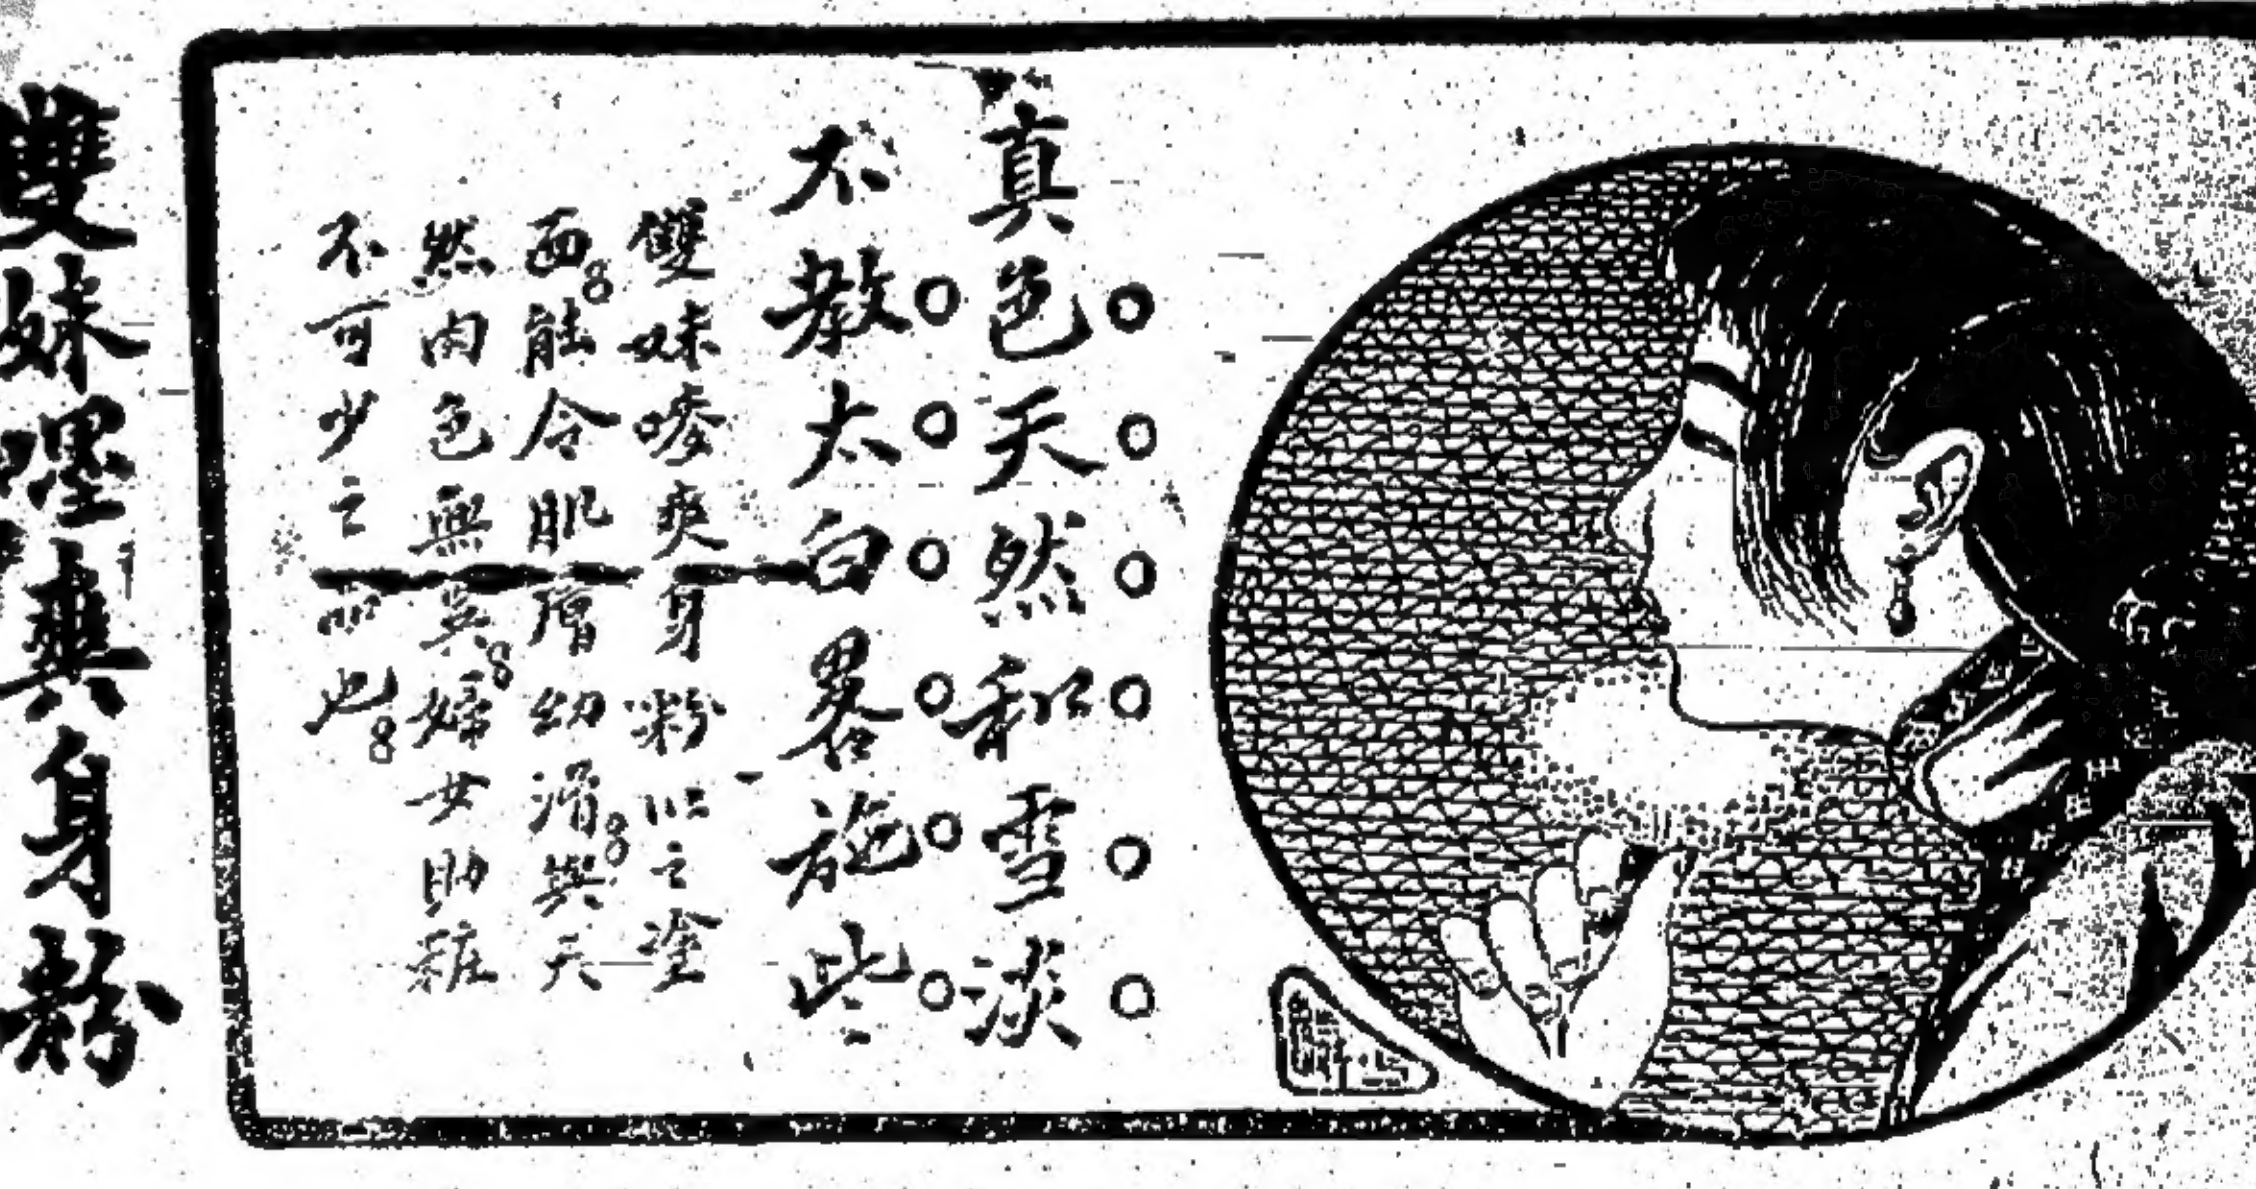 真色天然和雪淡
不教太白畧施些
雙妹嗲爽身粉以之塗
面能令肌膚幼滑與天
然肉色無異婦女助粧
不可少之品也
雙妹嚜爽身粉